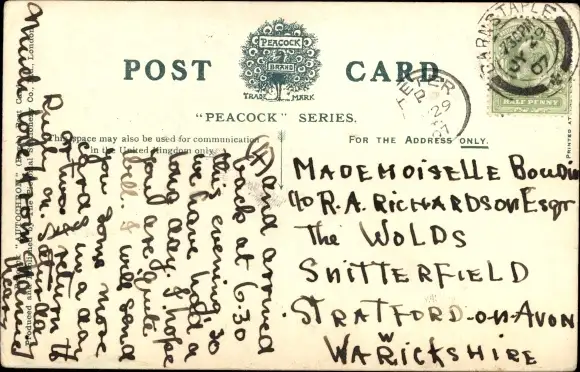 POST CARD
PEACOCK
BRAND
TRADE MARK
"PEACOCK" SERIES.
This space may also be used for communication
in the United Kingdom only.
FOR THE ADDRESS ONLY.
BARNSTAPLE
JY 29
07
HALF PENNY
MADEMOISELLE
c/o R.A. RICHARDSON Esqr
The WOLDS
SNITTERFIELD
STRATFORD-ON-AVON
WARWICKSHIRE
(4) and arrived
back at 6.30
this evening so
we have had a
long day. I hope
you are quite
well. I will send
you some more
cards in a day
or two. I return to
Rugby on Saturday